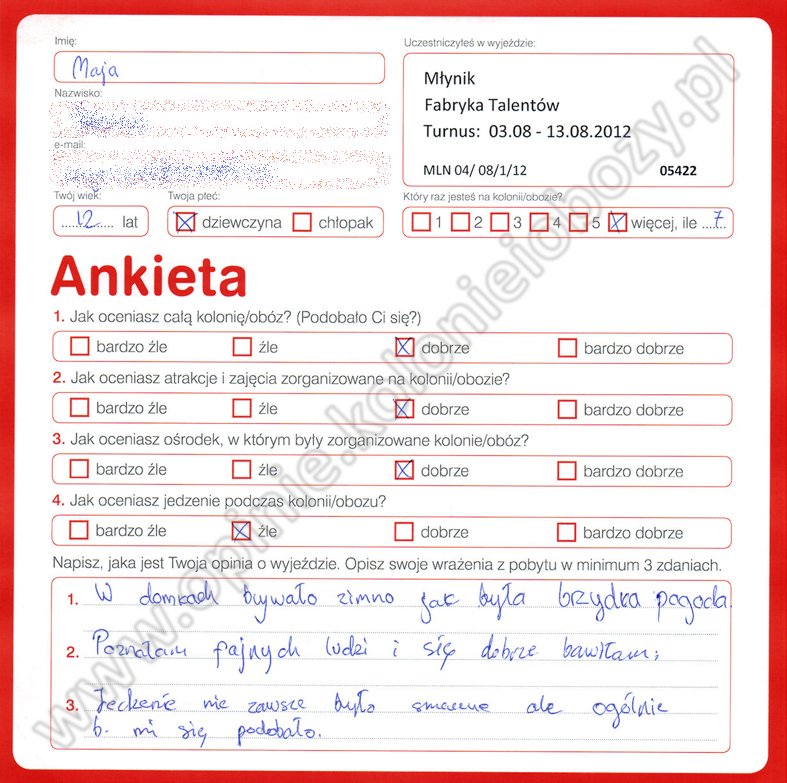 Imię:
Maja
Nazwisko:
e-mail:
Twój wiek:
12 lat
Twoja płeć:
dziewczyna chłopak
Uczestniczyłeś w wyjeździe:
Młynik
Fabryka Talentów
Turnus: 03.08 - 13.08.2012
MLN 04/ 08/1/12 05422
Który raz jesteś na kolonii/obozie?
1 2 3 4 5 więcej, ile 7
Ankieta
1. Jak oceniasz całą kolonię/obóz? (Podobało Ci się?)
bardzo źle źle dobrze bardzo dobrze
2. Jak oceniasz atrakcje i zajęcia zorganizowane na kolonii/obozie?
bardzo źle źle dobrze bardzo dobrze
3. Jak oceniasz ośrodek, w którym były zorganizowane kolonie/obóz?
bardzo źle źle dobrze bardzo dobrze
4. Jak oceniasz jedzenie podczas kolonii/obozu?
bardzo źle źle dobrze bardzo dobrze
Napisz, jaka jest Twoja opinia o wyjeździe. Opisz swoje wrażenia z pobytu w minimum 3 zdaniach.
1. W domkach bywało zimno jak była brzydka pogoda.
2. Poznałam fajnych ludzi i się dobrze bawiłam;
3. Jedzenie nie zawsze było smaczne ale ogólnie
b. mi się podobało.
www.opinie.kolonieiobozy.pl